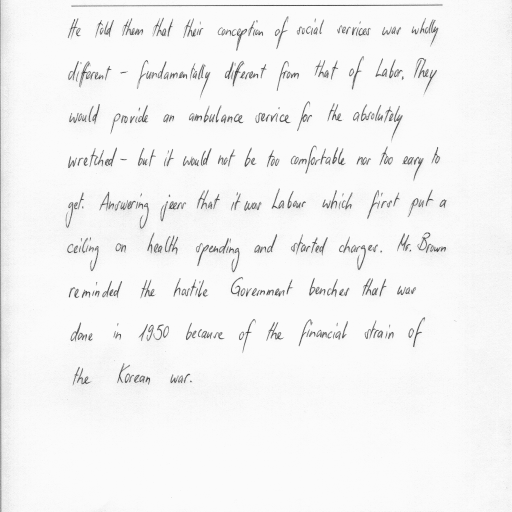 He told them that their conception of social services was wholly
different – fundamentally different from that of Labor. They
would provide an ambulance service for the absolutely
wretched – but it would not be too comfortable nor too easy to
get. Answering jeers that it was Labour which first put a
ceiling on health spending and started charges. Mr. Brown
reminded the hostile Government benches that was
done in 1950 because of the financial strain of
the Korean war.